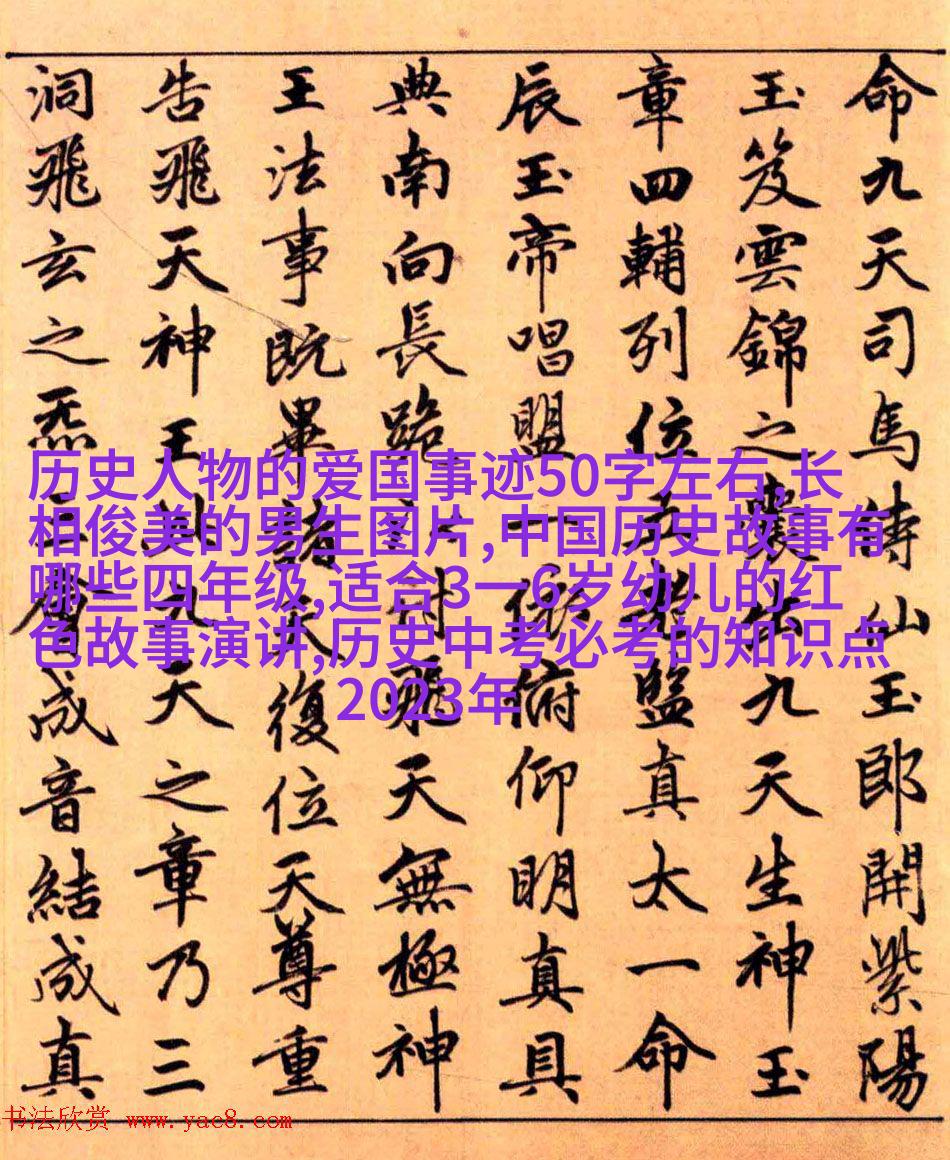 命九天司馬侍仙玉郎開紫陽
玉笈雲錦之囊九天生神玉
章四輔列位五老監真太一命
辰玉帝唱盟一俯仰明真具
典南向長跪付飛天無極神
王法事既畢諸天復位天尊重
告飛天神王此九天之章乃三
洞飛玄之炁三合成音結成真
历史人物的爱国事迹50字左右,长
相俊美的男生图片,中国历史故事有
哪些四年级,适合3一6岁幼儿的红
色故事演讲,历史中考必考的知识点
2023年
书法欣赏 www.yac8.com